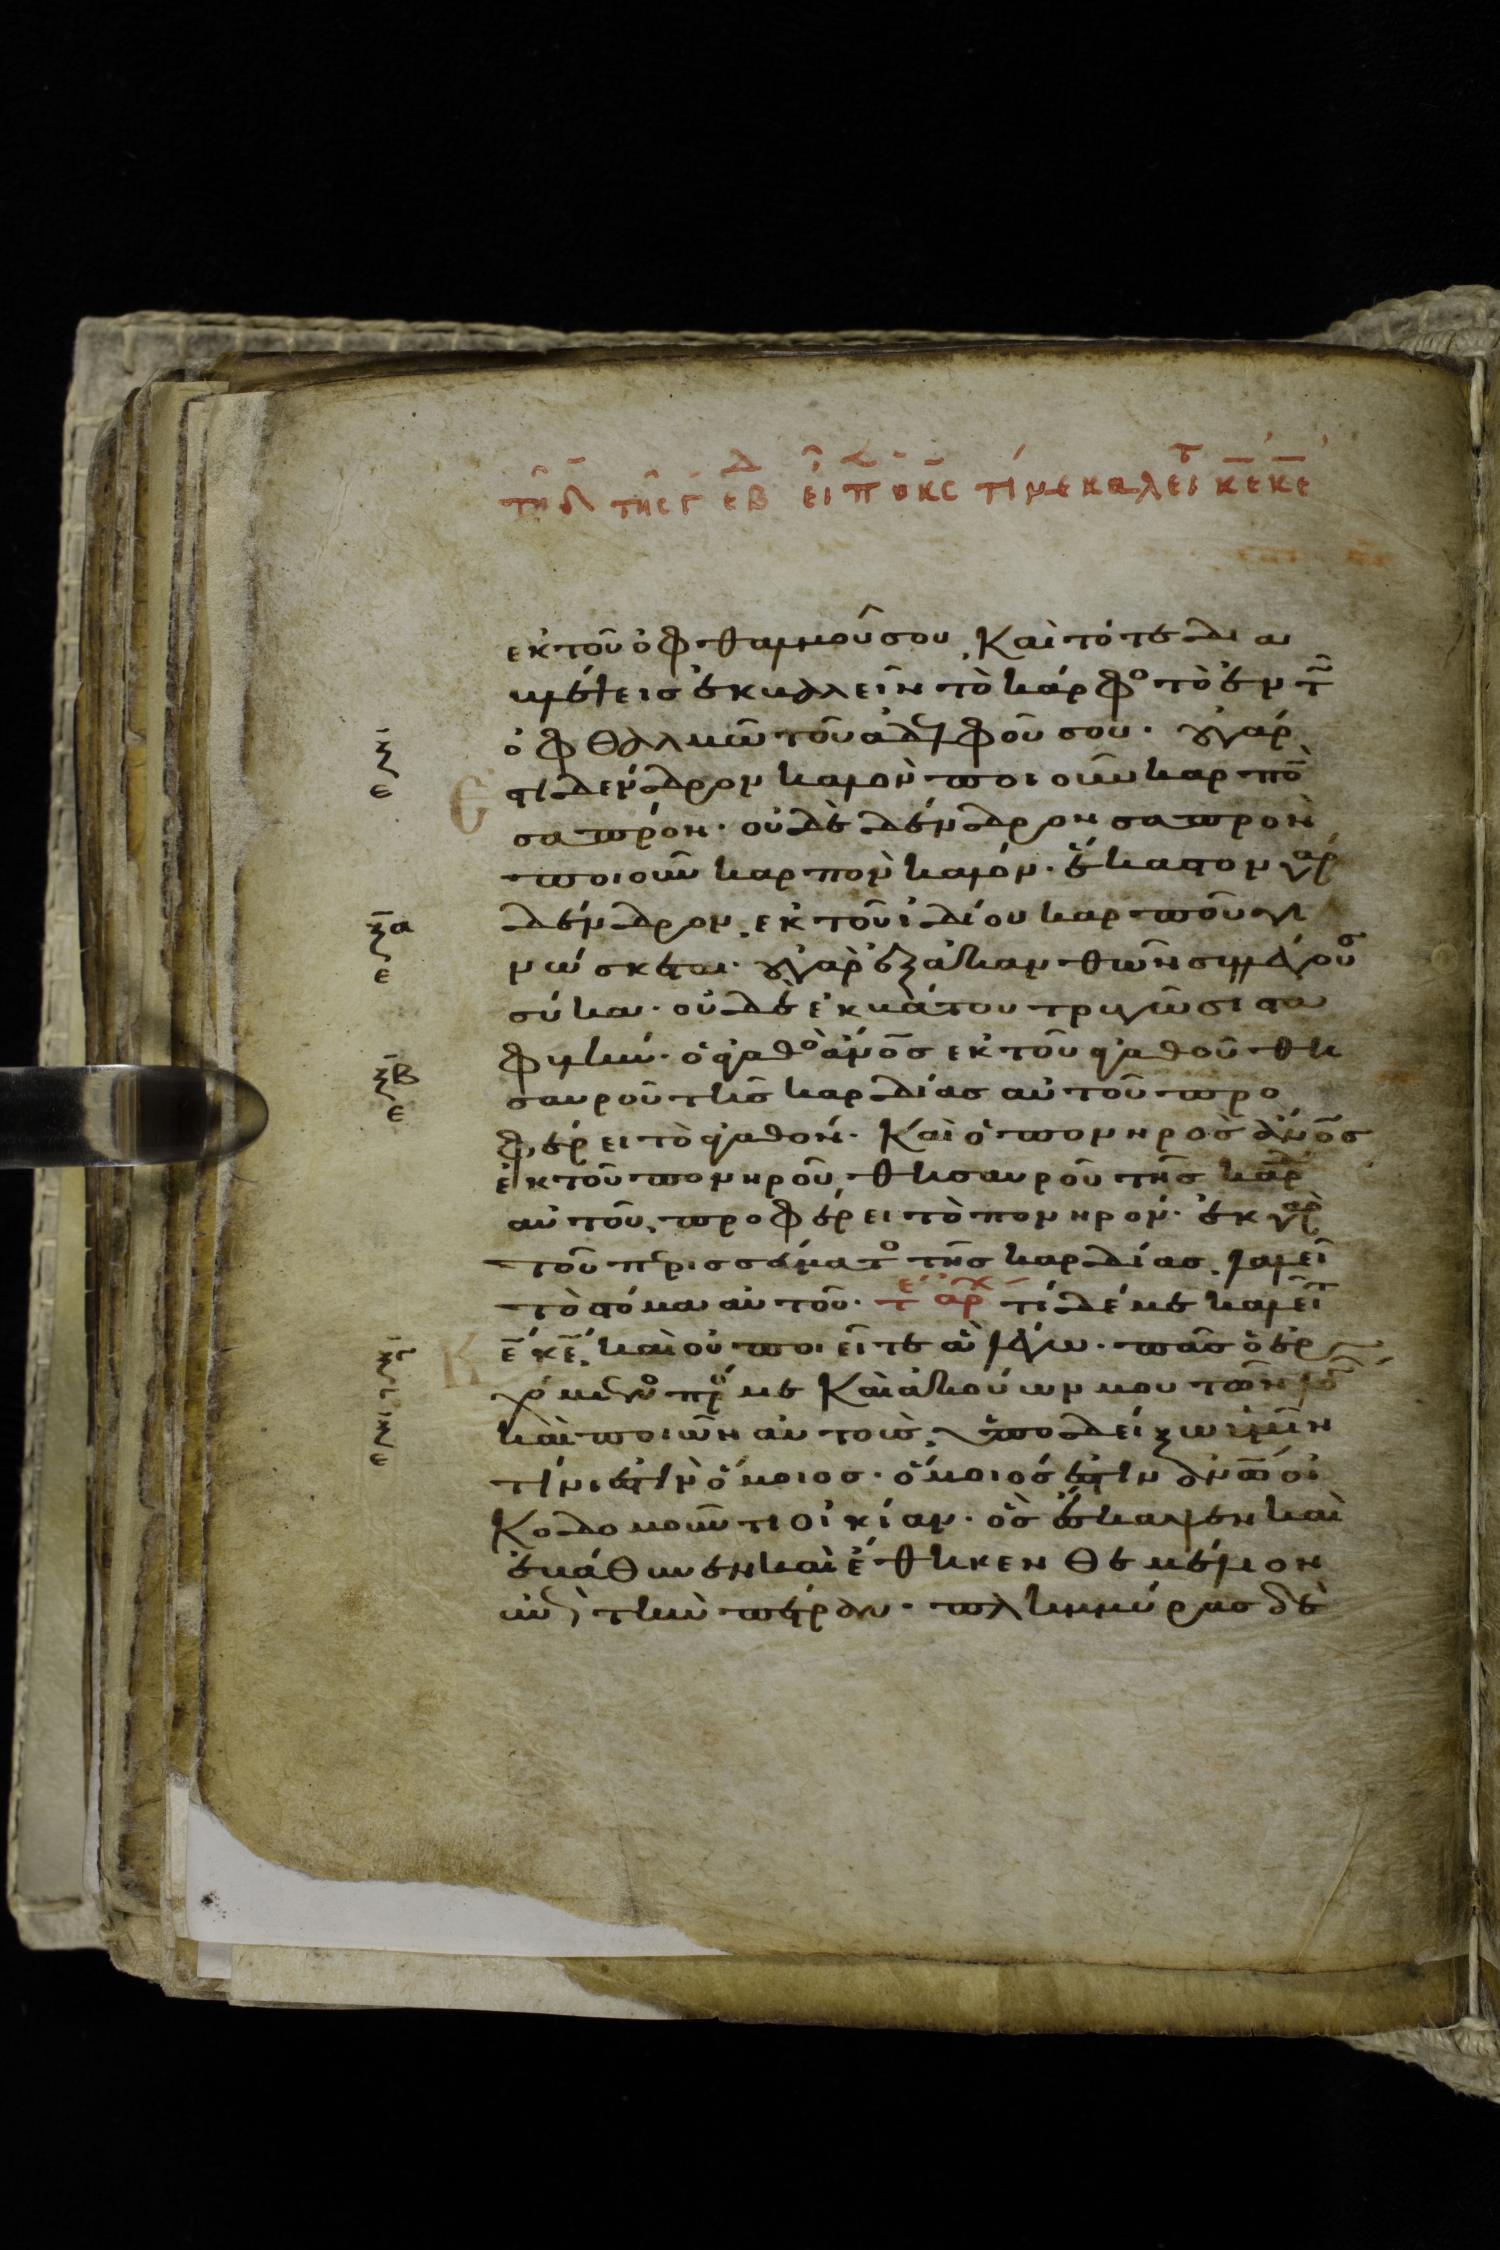 τῆ δ τῆς γ εβ εἶπ ο κς τί με καλεῖτ κε κε
ἐκ τοῦ ὀφθαλμοῦ σου, Καὶ τότε δια
βλέψεις ἐκβαλεῖν τὸ κάρφο τὸ ἐν τ
ὀφθαλμῶ τοῦ ἀδελφοῦ σου. οὐ γάρ
ἐστι δένδρον καλὸν ποιοῦν καρπὸ
σαπρόν. οὐδὲ δένδρον σαπρὸν
ποιοῦν καρπὸν καλόν. ἕκαστον γαρ
δένδρον, ἐκ τοῦ ἰδίου καρποῦ γι
νώσκεται. οὐ γὰρ ἐξ ἀκανθῶν συλλέγουσ
σύκα. οὐδὲ ἐκ βάτου τρυγῶσι στα
φυλήν. ὁ ἀγαθὸ ἀνοσ ἐκ τοῦ ἀγαθοῦ θη
σαυροῦ τῆς καρδίας αὐτοῦ προ
φέρει τὸ ἀγαθόν. Καὶ ὁ πονηρὸς ἀνοσ
ἐκ τοῦ πονηροῦ θησαυροῦ τῆς καρ
αὐτοῦ, προφέρει τὸ πονηρόν. ἐκ γαρ
τοῦ περισσεύματο τῆς καρδίας, λαλεῖ
τὸ στόμα αὐτοῦ. τε αρχ τί δέ με καλεῖτ
ε κε κε, καὶ οὐ ποιεῖτε ἃ λέγω. πᾶσ ὁ ἐρ
χόμενο πρ με Καὶ ἀκούων μου τῶν λο
καὶ ποιῶν αὐτούς, ὑποδείξω ὑμῖν
τίνι ἐστὶν ὅμοιοσ. ὅμοιός ἐστιν ἀνω οἰ
Κοδομοῦντι οἰκίαν. ὃς ἔσκαψεν καὶ
ἐβάθυνεν καὶ ἔθηκεν θεμέλιον
ἐπὶ τὴν πέτραν. πλημμύρας δὲ
ξ
ε
ξα
ε
ξβ
ε
ε